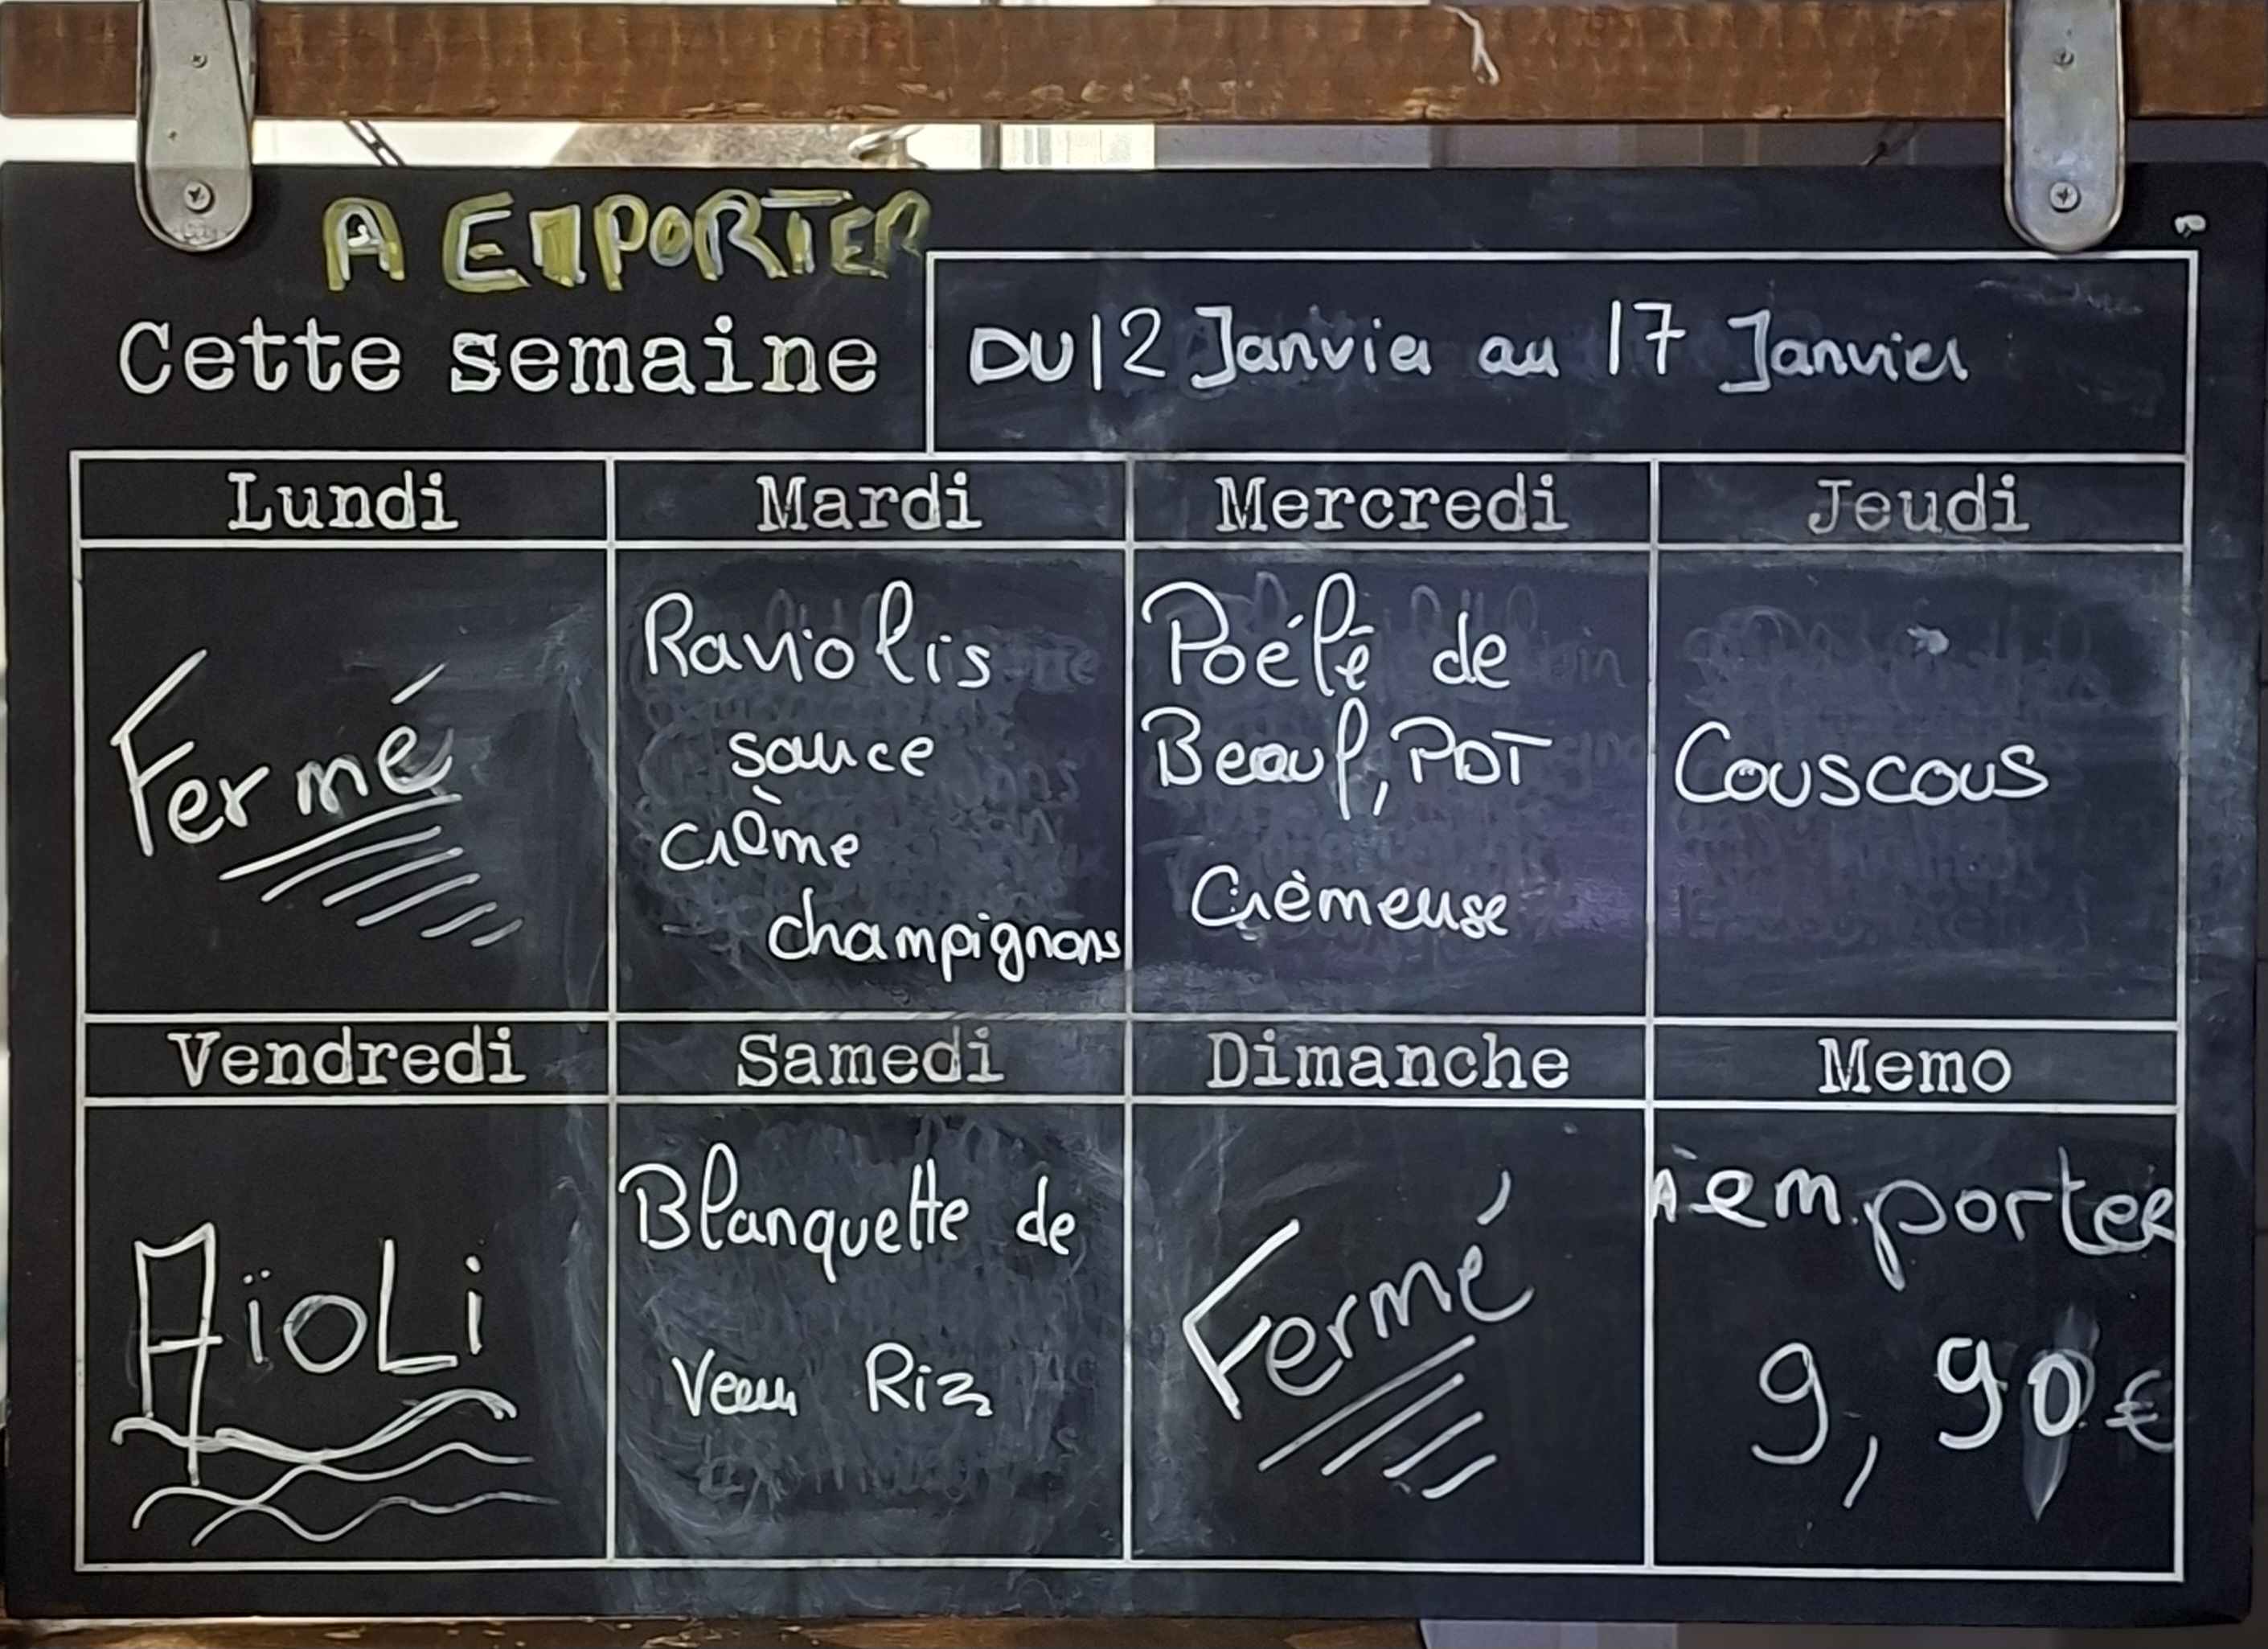 A EMPORTER
Cette semaine
DU 12 Janvier au 17 Janvier
Lundi
Mardi
Mercredi
Jeudi
Fermé
Raviolis
sauce
crème
champignons
Poélé de
Beouf, PDT
Crèmeuse
Couscous
Vendredi
Samedi
Dimanche
Memo
AïoLi
Blanquette de
Veau Riz
Fermé
A emporter
9,90€